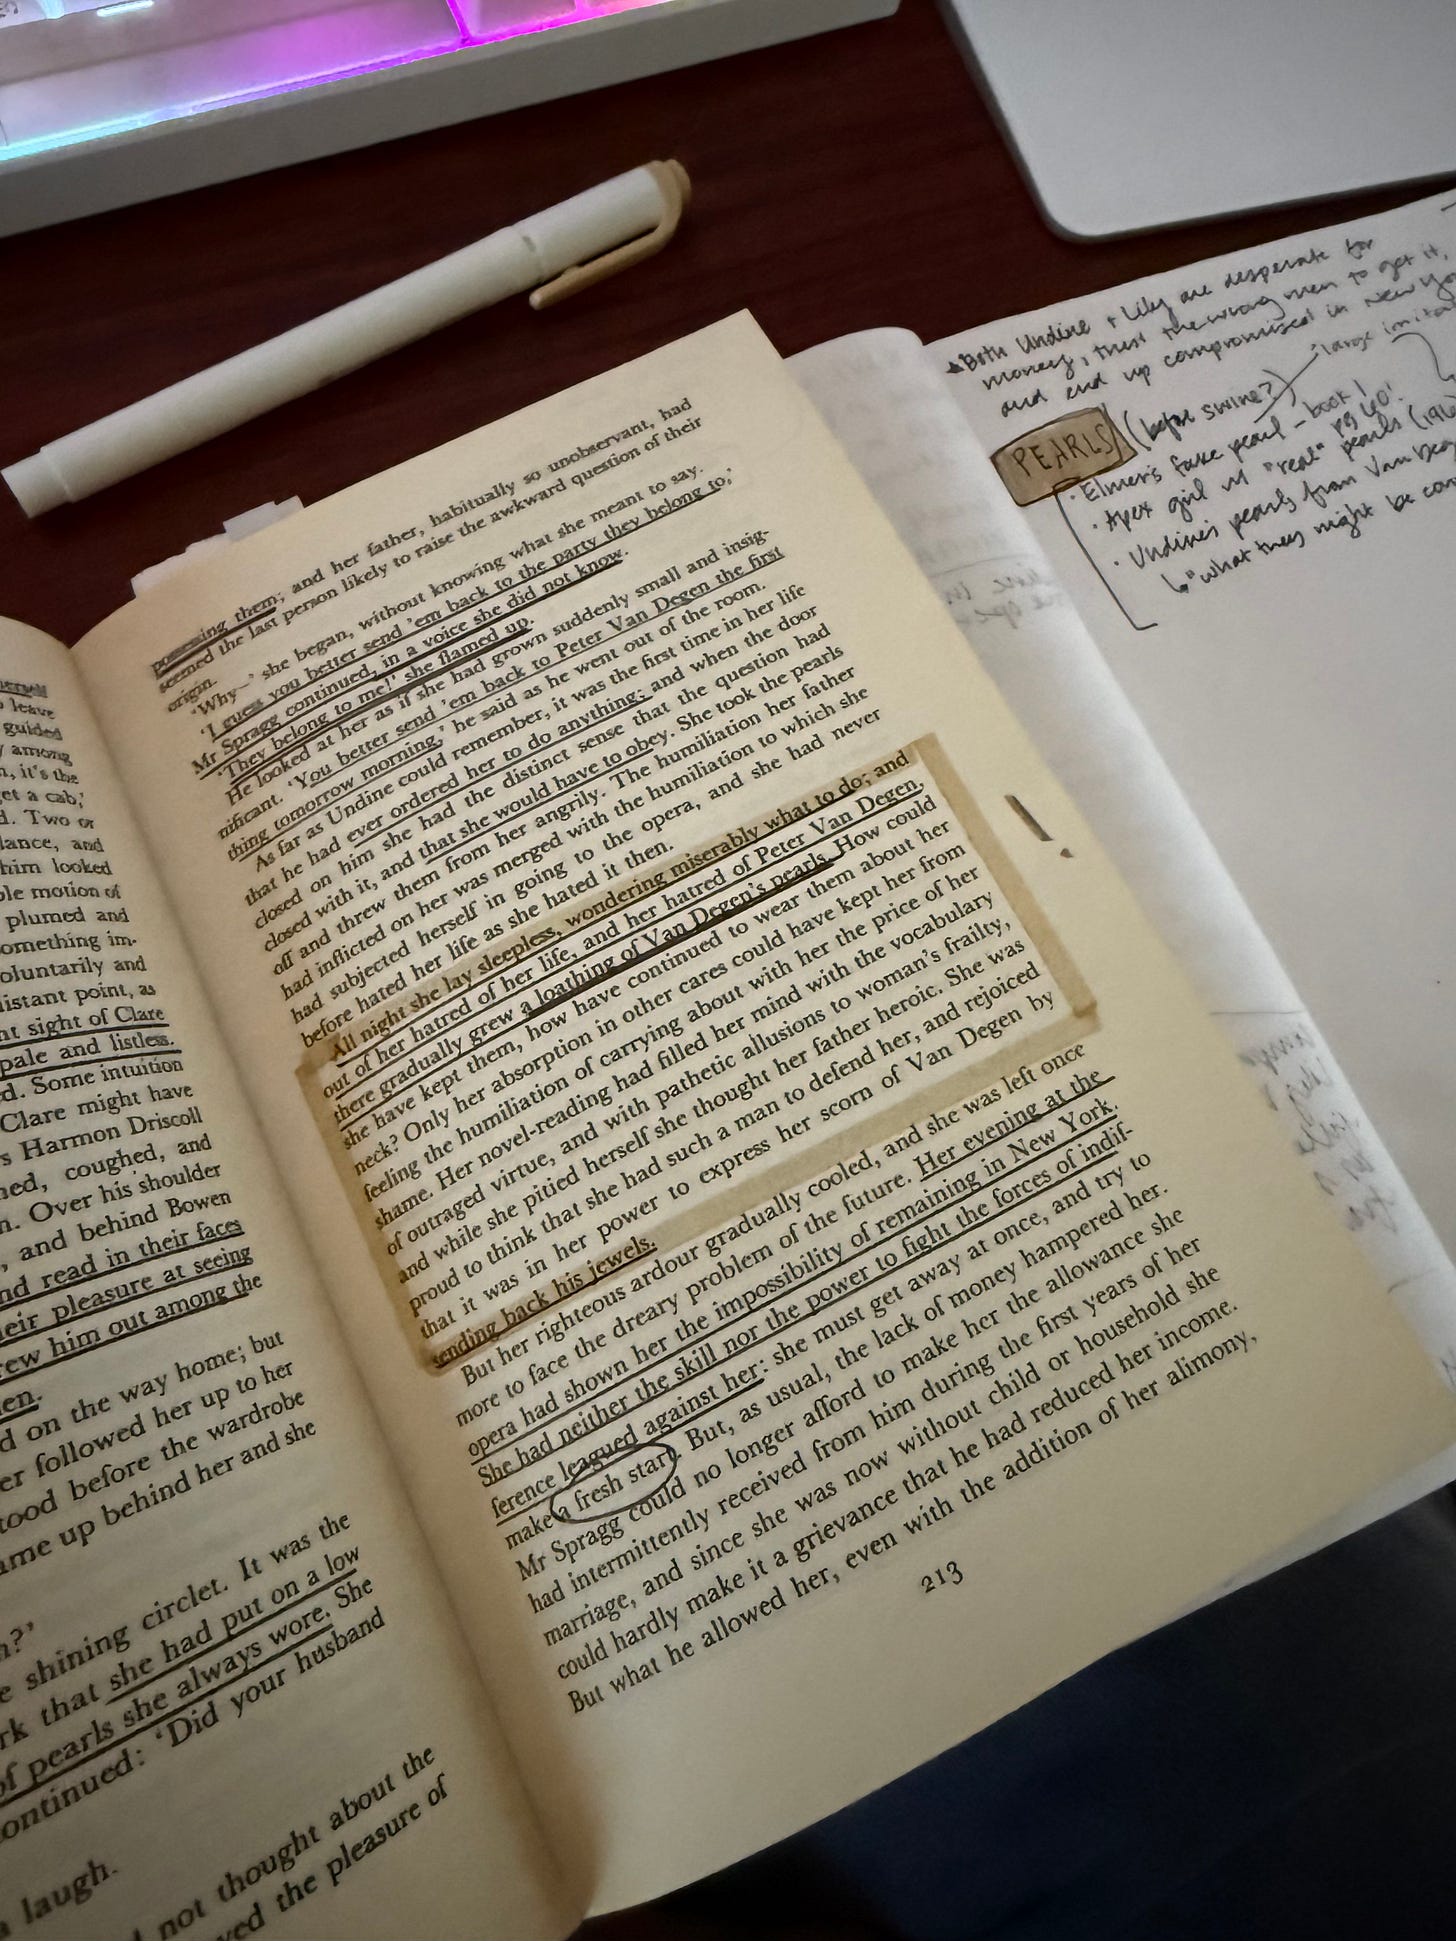 personal
leave
guided
among
it's the
get a cab,'
d. Two or
lance, and
him looked
ble motion of
plumed and
something im-
voluntarily and
distant point, as
sight of Clare
pale and listless.
d. Some intuition
Clare might have
s Harmon Driscoll
ned, coughed, and
n. Over his shoulder
, and behind Bowen
nd read in their faces
their pleasure at seeing
rew him out among the
en.
d on the way home; but
er followed her up to her
tood before the wardrobe
ame up behind her and she
n?'
e shining circlet. It was the
rk that she had put on a low
of pearls she always wore. She
ontinued: 'Did your husband
a laugh.
d not thought about the
yed the pleasure of
possessing them; and her father, habitually so unobservant, had
seemed the last person likely to raise the awkward question of their
origin.
'Why—' she began, without knowing what she meant to say.
'I guess you better send 'em back to the party they belong to,'
Mr Spragg continued, in a voice she did not know.
'They belong to me!' she flamed up.
He looked at her as if she had grown suddenly small and insig-
nificant. 'You better send 'em back to Peter Van Degen the first
thing tomorrow morning,' he said as he went out of the room.
As far as Undine could remember, it was the first time in her life
that he had ever ordered her to do anything; and when the door
closed on him she had the distinct sense that the question had
closed with it, and that she would have to obey. She took the pearls
off and threw them from her angrily. The humiliation her father
had inflicted on her was merged with the humiliation to which she
had subjected herself in going to the opera, and she had never
before hated her life as she hated it then.
All night she lay sleepless, wondering miserably what to do; and
out of her hatred of her life, and her hatred of Peter Van Degen,
there gradually grew a loathing of Van Degen's pearls. How could
she have kept them, how have continued to wear them about her
neck? Only her absorption in other cares could have kept her from
feeling the humiliation of carrying about with her the price of her
shame. Her novel-reading had filled her mind with the vocabulary
of outraged virtue, and with pathetic allusions to woman's frailty,
and while she pitied herself she thought her father heroic. She was
proud to think that she had such a man to defend her, and rejoiced
that it was in her power to express her scorn of Van Degen by
sending back his jewels.
But her righteous ardour gradually cooled, and she was left once
more to face the dreary problem of the future. Her evening at the
opera had shown her the impossibility of remaining in New York.
She had neither the skill nor the power to fight the forces of indif-
ference leagued against her: she must get away at once, and try to
make a fresh start. But, as usual, the lack of money hampered her.
Mr Spragg could no longer afford to make her the allowance she
had intermittently received from him during the first years of her
marriage, and since she was now without child or household she
could hardly make it a grievance that he had reduced her income.
But what he allowed her, even with the addition of her alimony,
213
Both Undine + Lily are desperate for
money, trust the wrong men to get it,
and end up compromised in New Yo
PEARLS (before swine?) "large imita
Elmer's fake pearl - book 1
pg 60!
Apex girl w/ "real" pearls (196
Undine's pearls from Van Deg
"what they might be con